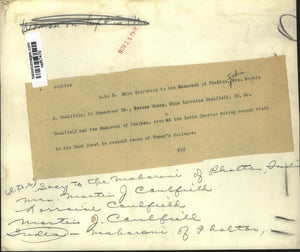 NOV 15 1948
caption
L to R Male Secretary to the Maharani of Phaltan, India Mrs. Martin
J. Caulfield, 41 Olmstead Rd., Miss Lorraine Caulfield, 20, Mr.
Caulfield and the Maharani of Phaltan, seen at the Latin Quarter during recent visit
to the East Coast to consult Deans of Women's Colleges.
Secy to the Maharani of Phaltan, India
Mrs. Martin J Caulfield
Lorraine Caulfield
Martin J. Caulfield
India - Maharani of Phaltan,